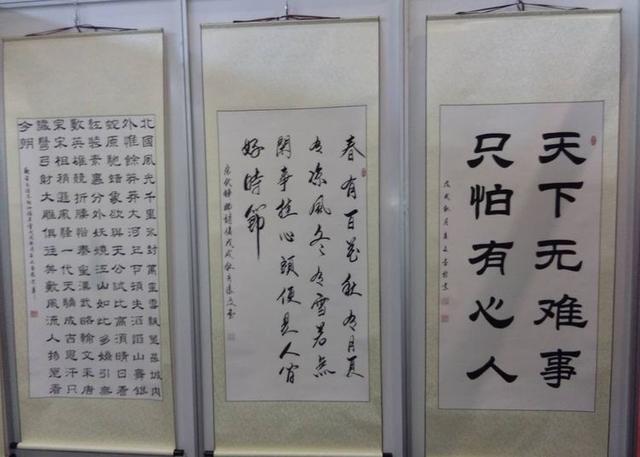 北國風光千里冰封萬里雪飄望長城内
外惟餘莽莽大河上下頓失滔滔山舞銀
蛇原馳蜡象欲與天公試比高須晴日看
紅裝素裹分外妖嬈江山如此多嬌引無
數英雄競折腰惜秦皇漢武略輸文采唐
宗宋祖稍遜風騷一代天驕成吉思汗只
識彎弓射大雕俱往矣數風流人物還看
今朝
春有百花秋有月夏
有涼風冬有雪若無
閑事挂心頭便是人间
好時節
天下无难事
只怕有心人
戊戌秋月